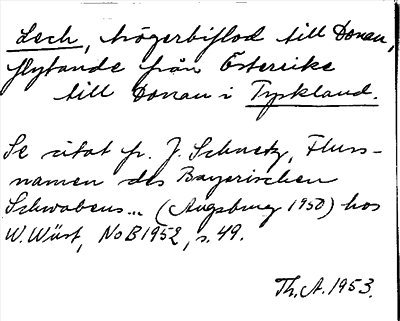 Lech, högerbiflod till Donau,
flytande från Österrike
till Donau i Tyskland.
Se citat fr. J. Schnetz, Fluss-
namen des Bayerischen
Schwabens... (Augsburg 1950) hos
W. Wüst, NoB 1952, s. 49.
Th. A. 1953.